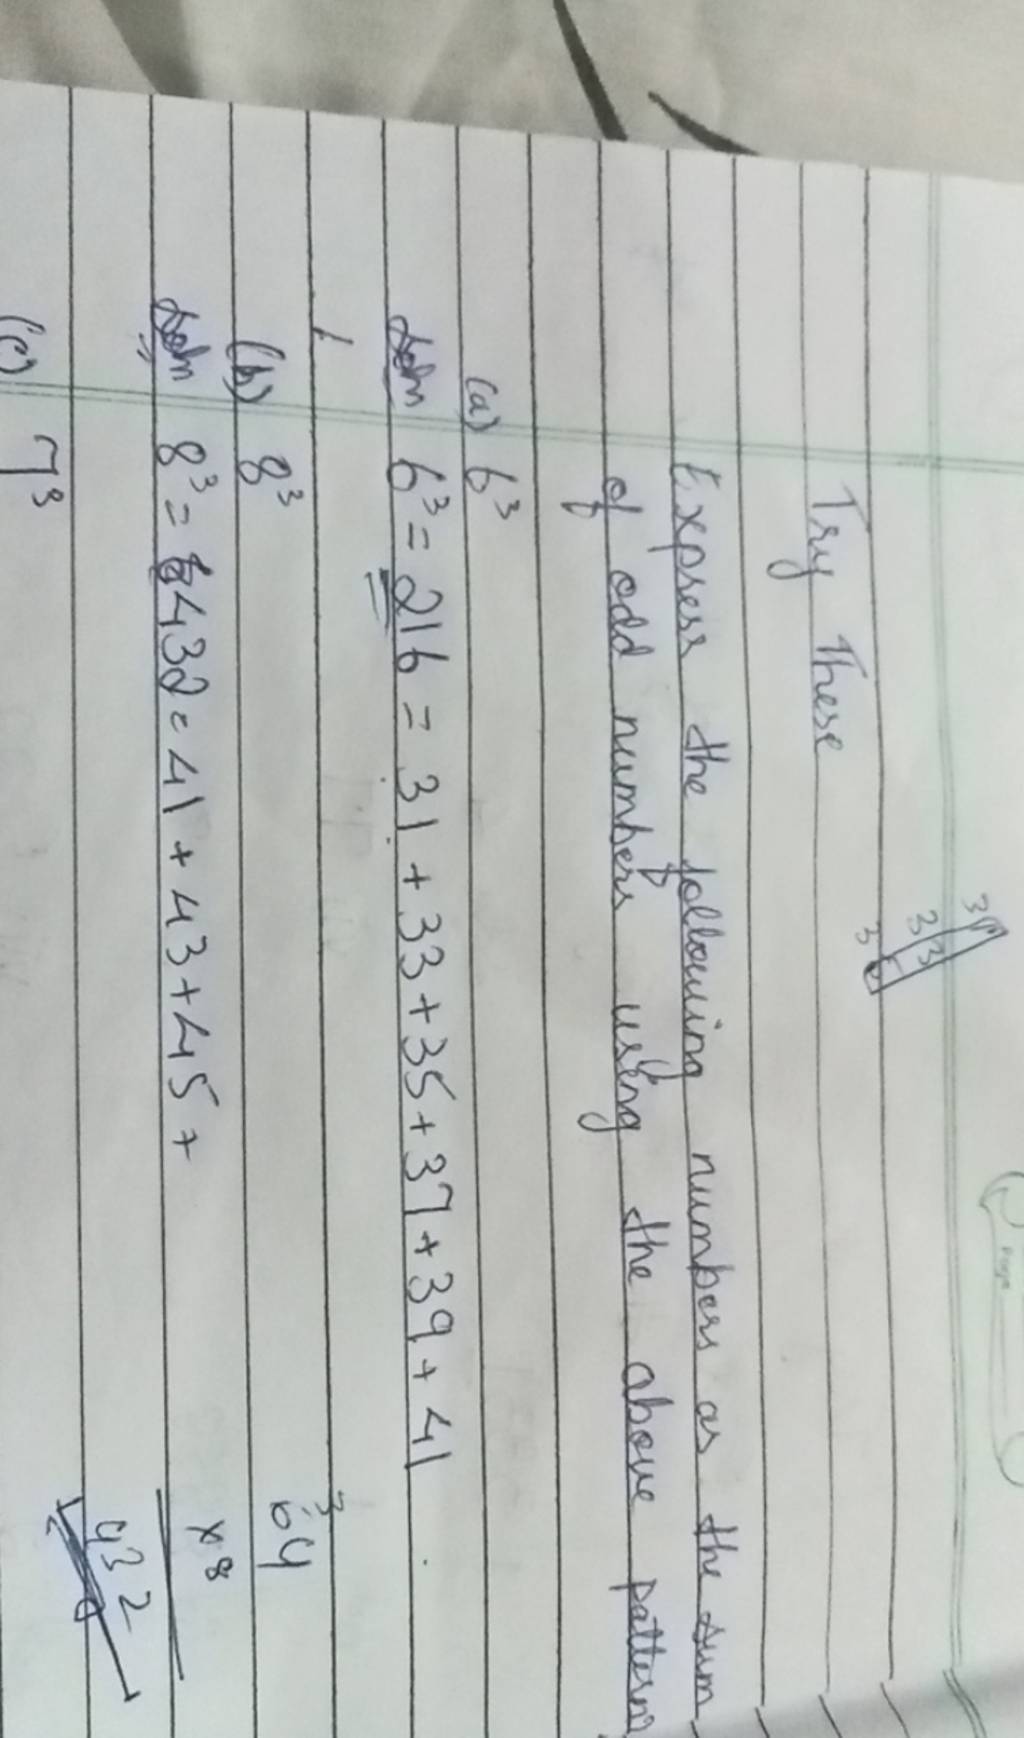 Page
Try These
Express the following numbers as the sum
of odd numbers using the above pattern?
(a) 6³
Soln 6³ = 216 = 31 + 33 + 35 + 37 + 39 + 41
(b) 8³
3
64
×8
432
Soln 8³ = 432 = 41 + 43 + 45 +
(c) 7³